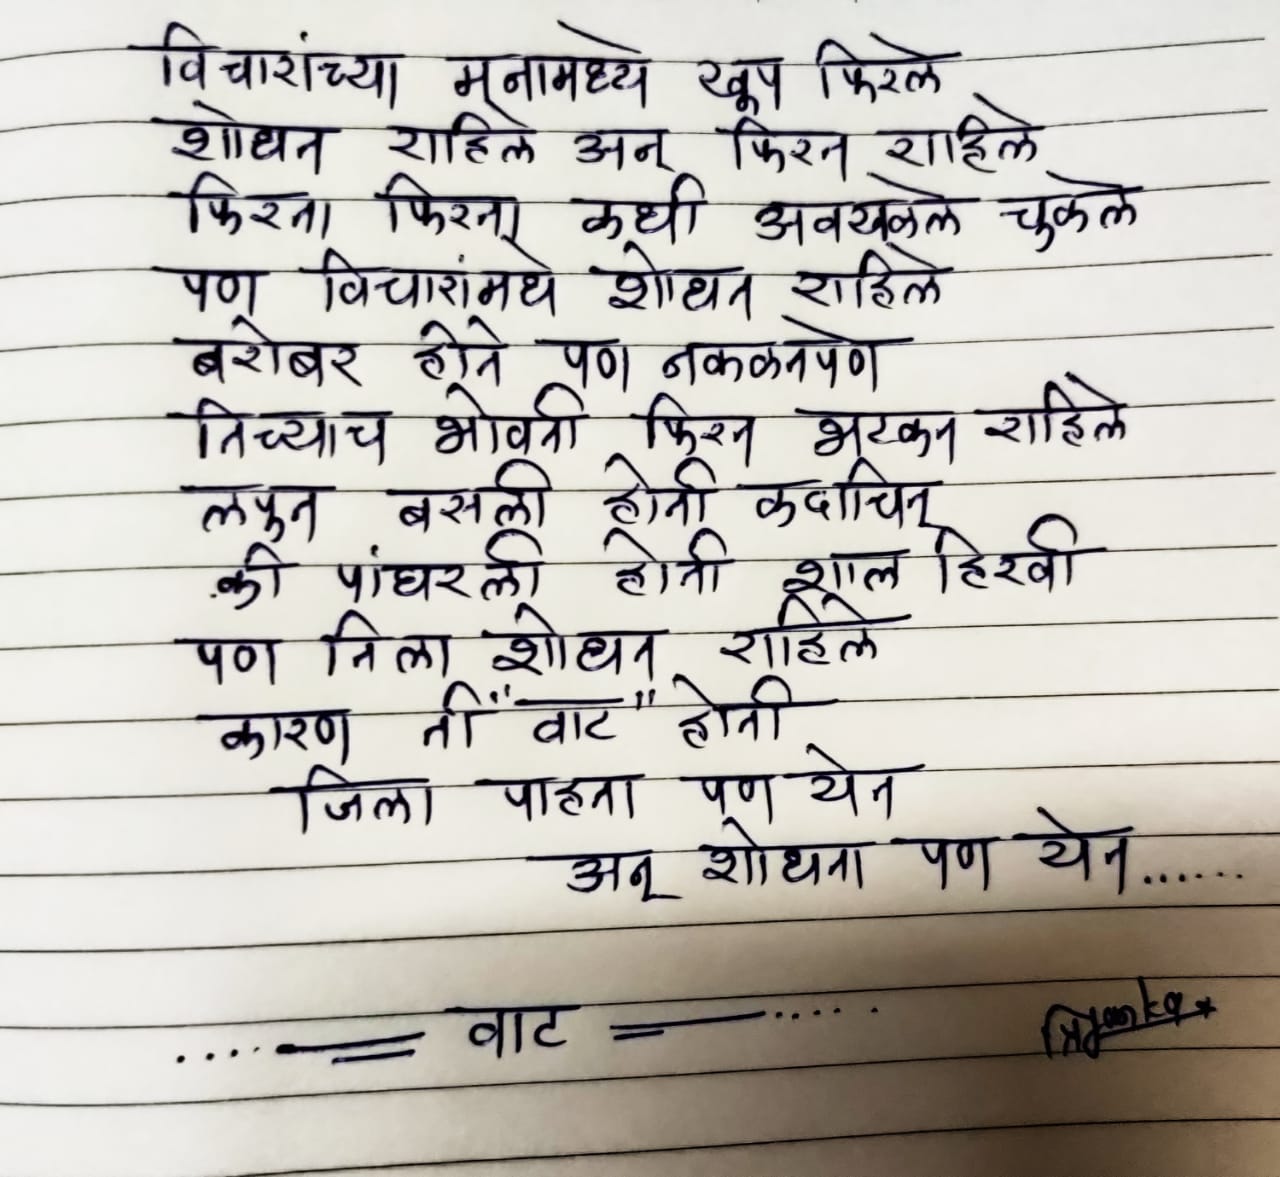 विचारांच्या मनामध्ये खूप फिरले
शोधत राहिले अन् फिरत राहिले
फिरता फिरता कधी अवखळले चुकले
पण विचारांमधे शोधत राहिले
बरोबर होते पण नकळतपणे
तिच्याच भोवती फिरत भटकत राहिले
लपुन बसली होती कदाचित्
की पांघरली होती शाल हिरवी
पण तिला शोधत राहिले
कारण ती "वाट" होती
जिला पाहता पण येत
अन् शोधता पण येत......
....== वाट ==.....
Priyanka